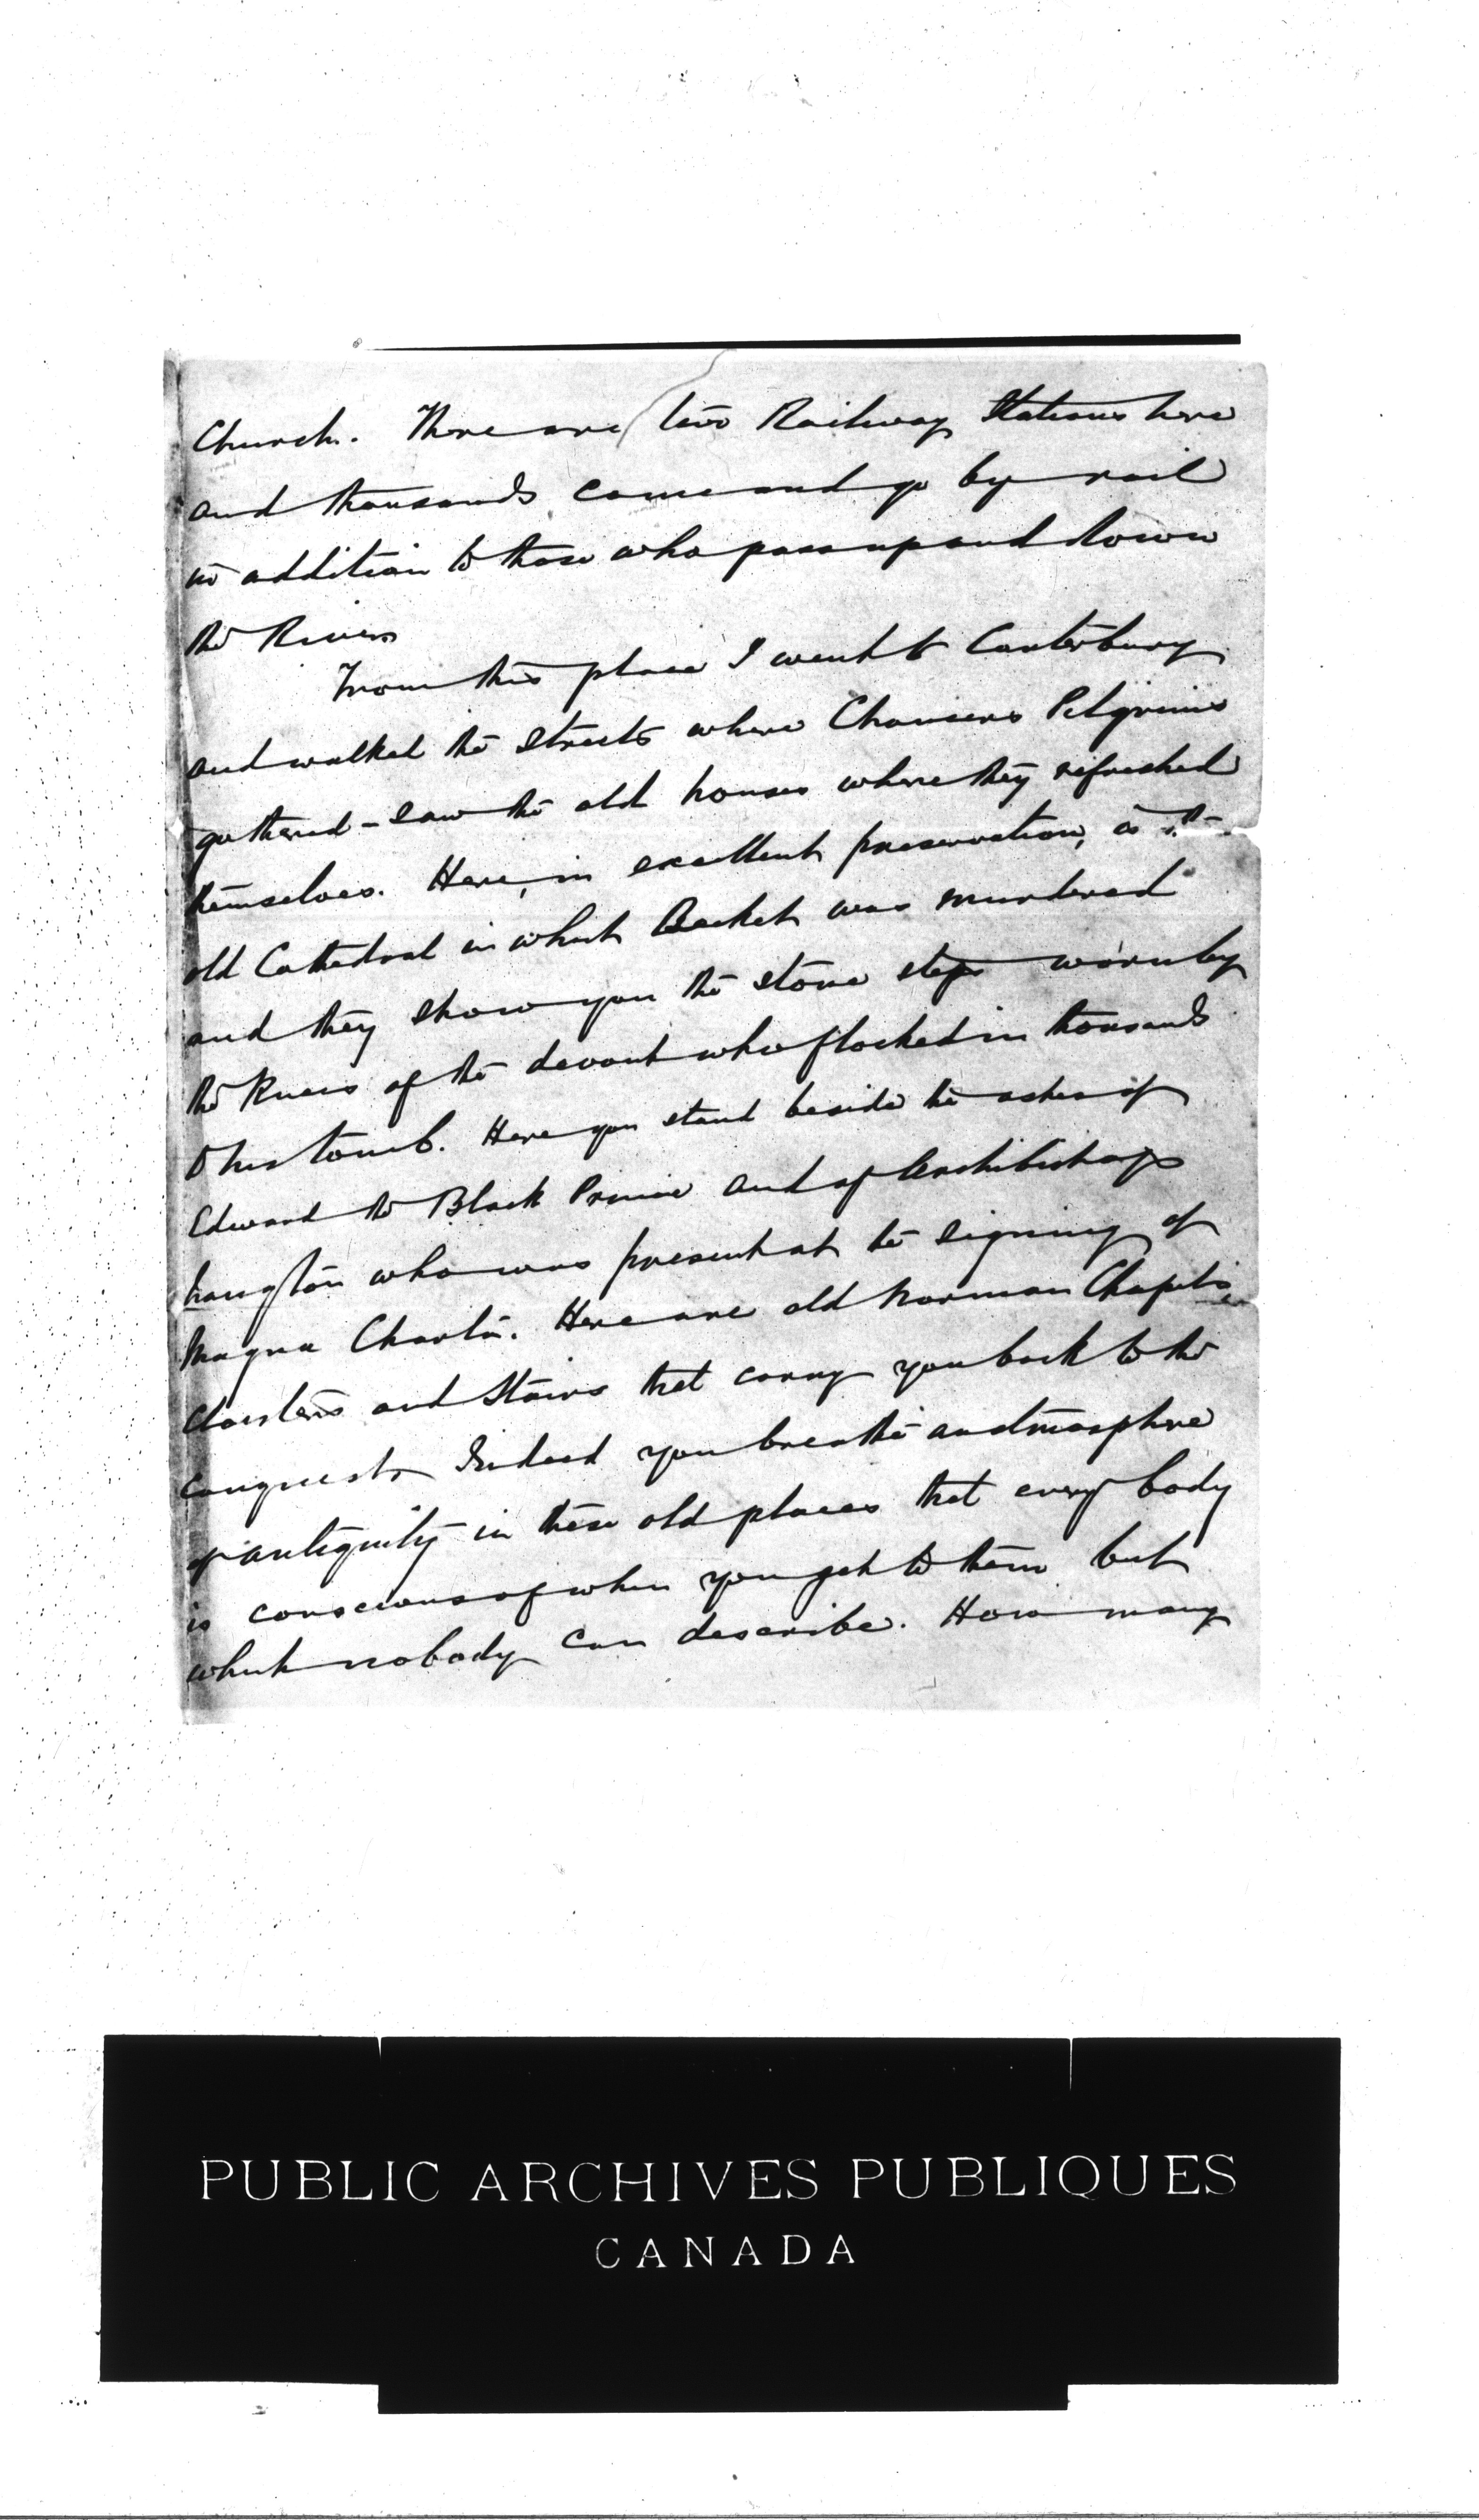 Church. There are two Railway Stations here
and thousands come and go by rail
in addition to those who pass up and down
the River
From this place I went to Canterbury
and walked the streets where Chaucers Pilgrims
gathered - saw the old houses where they refreshed
themselves. Here, in excellent preservation, is the
old Cathedral in which Becket was murdered
and they show you the stone steps worn by
the knees of the devout who flocked in thousands
to his tomb. Here you stand beside the ashes of
Edward the Black Prince and of Archbishop
Langton who was present at the signing of
Magna Charta. Here are old Norman Chapels
Cloisters and Stairs that carry you back to the
conquest. Indeed you breathe an atmosphere
of antiquity in these old places that every body
is conscious of when you get to them but
which nobody can describe. How many
PUBLIC ARCHIVES PUBLIQUES
CANADA